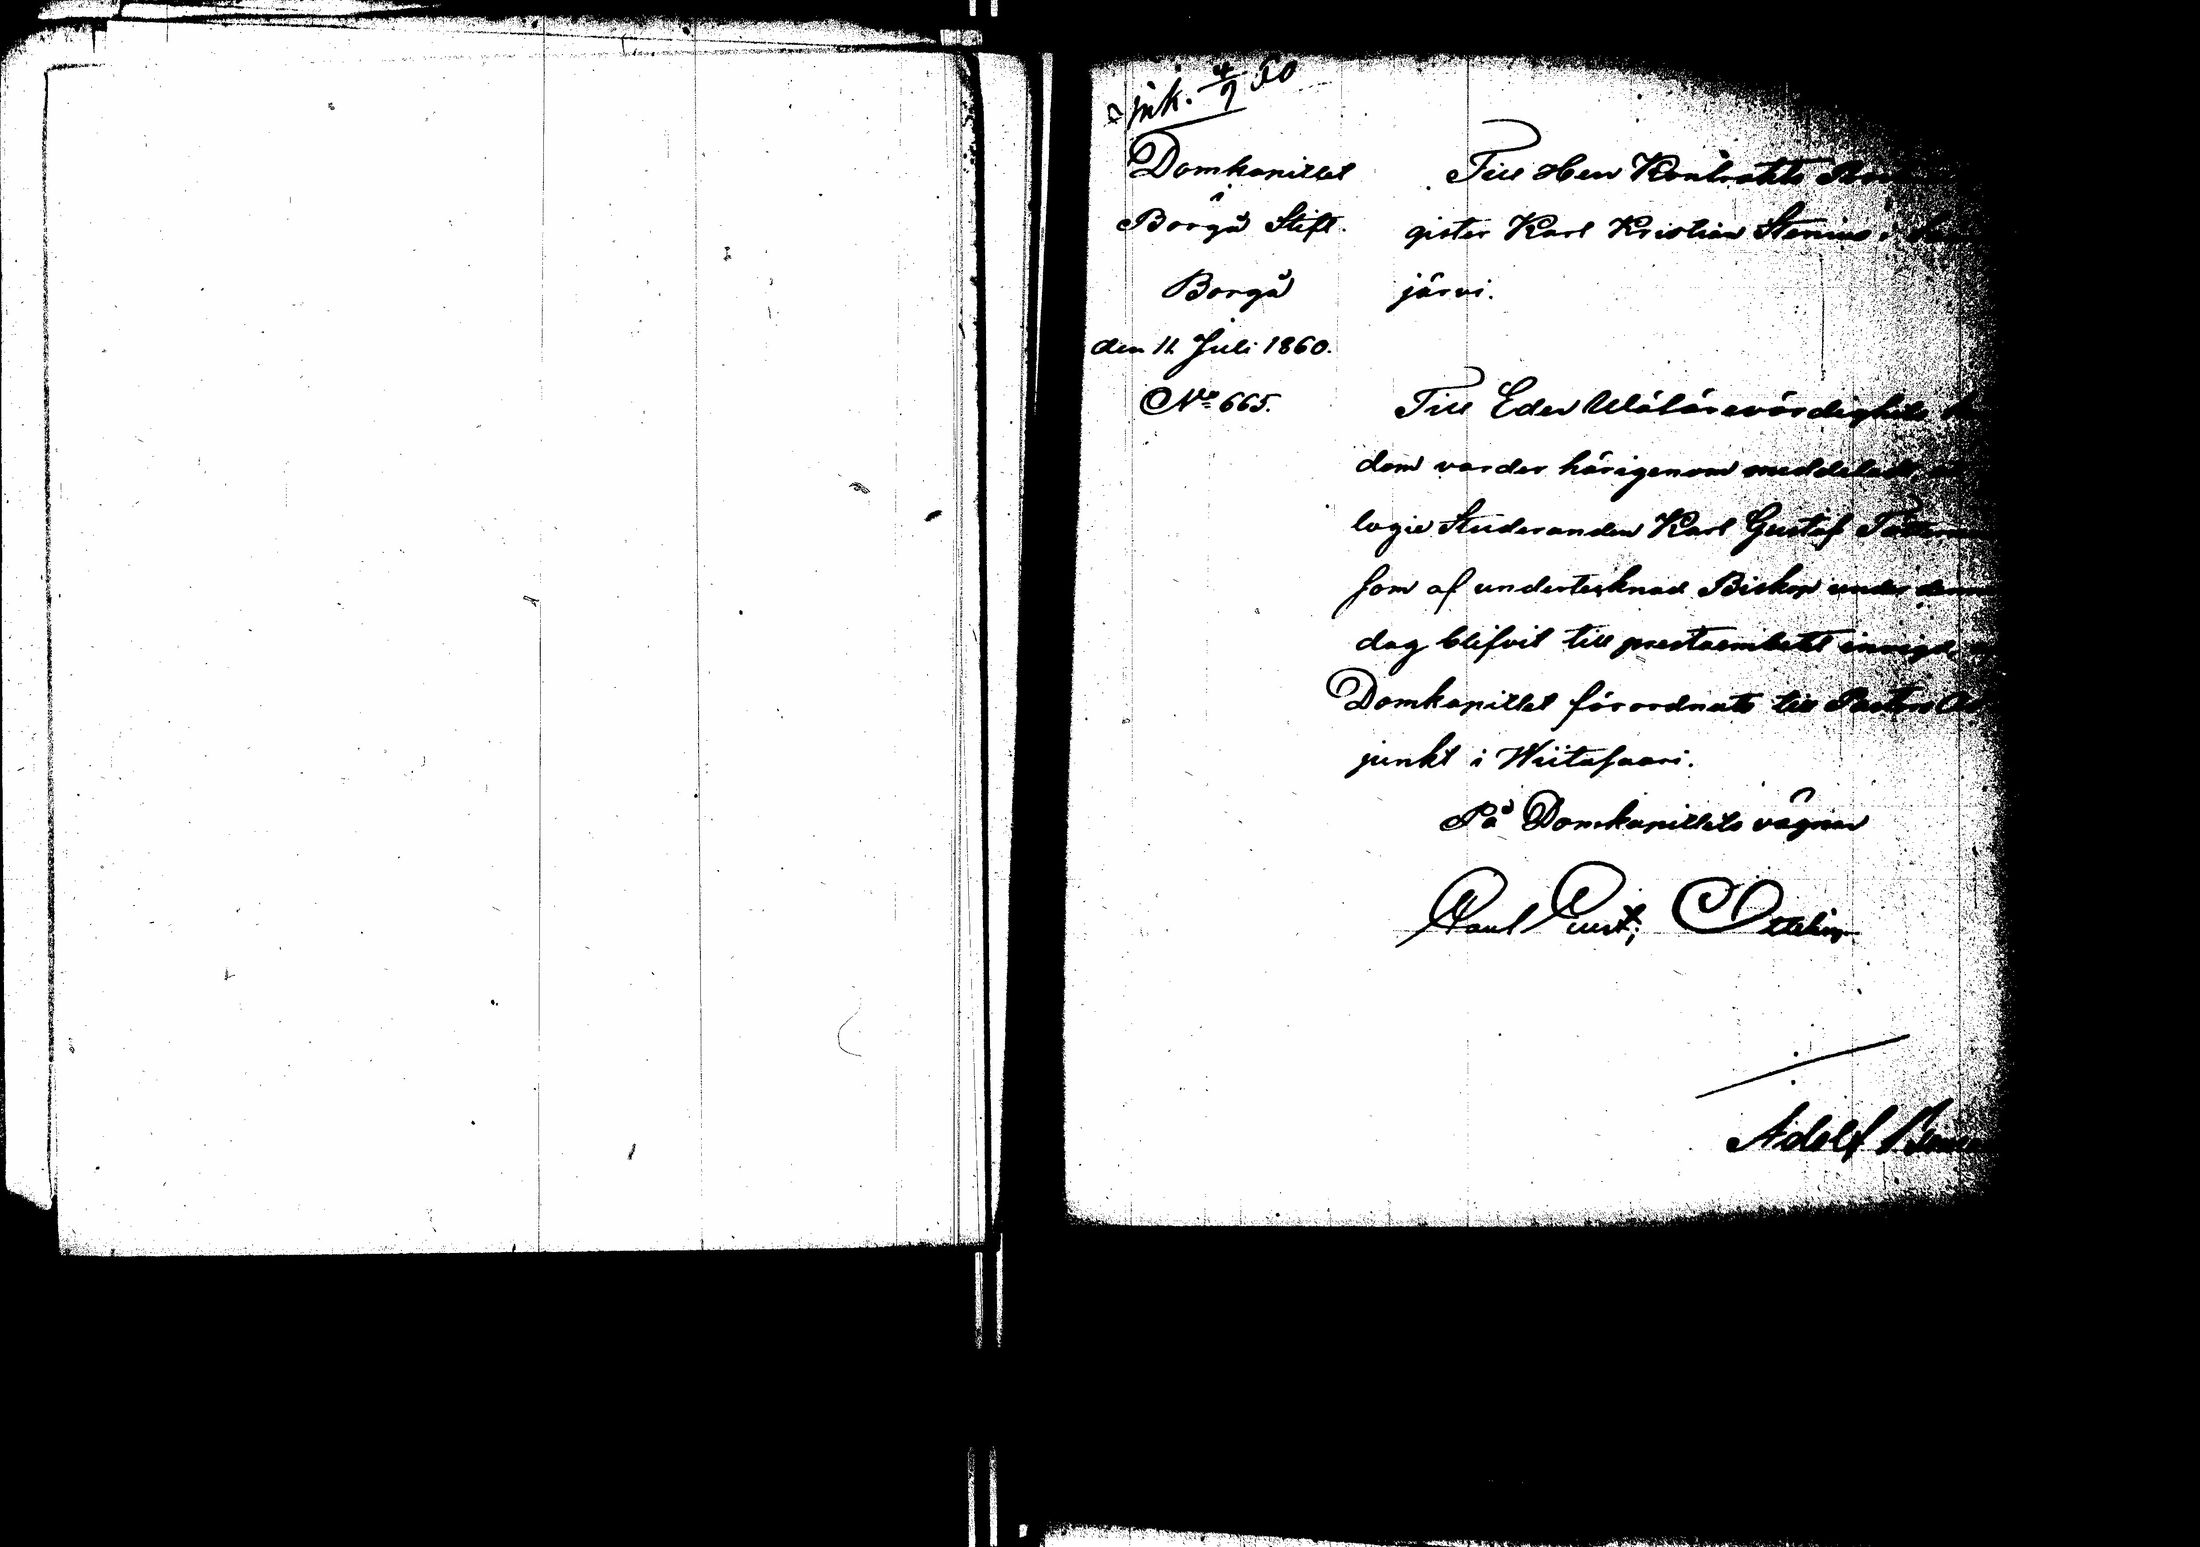 ink. 4/9 60
Domkapitlet
i
Borgå Stift.
Borgå
den 11 Juli 1860.
No 665.
Till Herr Kontrakts
gister Karl Kristian Stenius i
järvi.
Till Eder Wälärevördighets
dom varder härigenom meddeladt,
logie Studeranden Karl Gustaf
som af undertecknad Biskop under denna
dag blifvit till prestaembetet invigd,
Domkapitlet förordnats till Pastors Ad
junkt i Wiitasaari.
På Domkapitlets vägnar
Carl Gust. Ottelin
Adolf